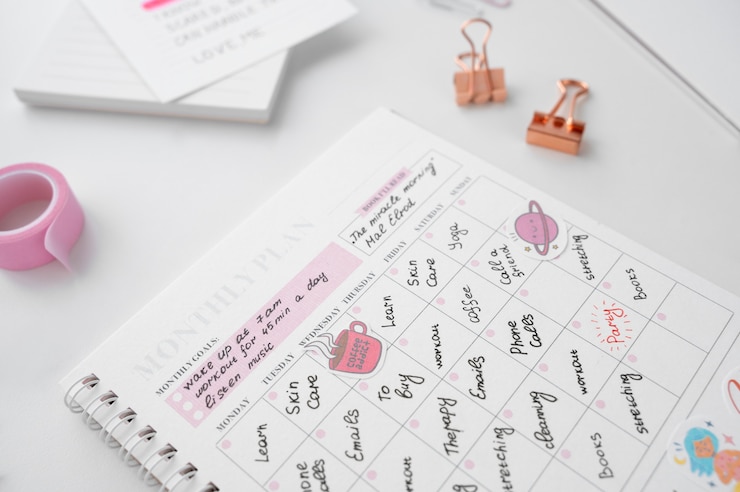 LOVE ME
MONTHLY PLAN
BOOK I'LL READ
"The miracle morning"
Mal Elrod
MONTHLY GOALS:
wake up at 7am
workout for 45min a day
listen music
MONDAY TUESDAY WEDNESDAY THURSDAY FRIDAY SATURDAY SUNDAY
Learn
Skin
Care
coffee
addict
Learn
Skin
Care
Yoga
Emails
To
Buy
workout
coffee
Call a
friend
stretching
Therapy
Emails
Phone
Calls
Books
stretching
cleaning
workout
Party
Books
stretching